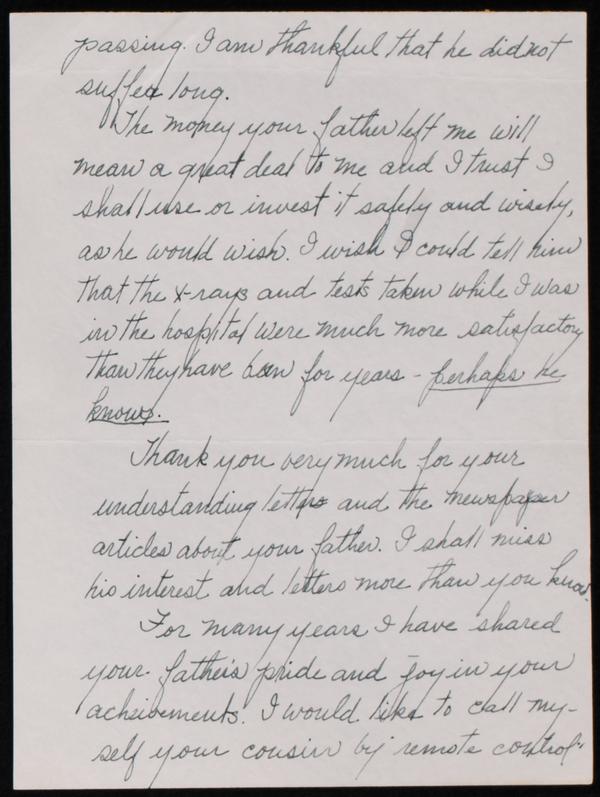 passing. I am thankful that he did not
suffer long.
The money your father left me will
mean a great deal to me and I trust I
shall use or invest it safely and wisely,
as he would wish. I wish I could tell him
that the x-rays and tests taken while I was
in the hospital were much more satisfactory
than they have been for years - perhaps he
knows.
Thank you very much for your
understanding letters and the newspaper
articles about your father. I shall miss
his interest and letters more than you know.
For many years I have shared
your father's pride and joy in your
acheivements. I would like to call my-
self your cousin by "remote control"